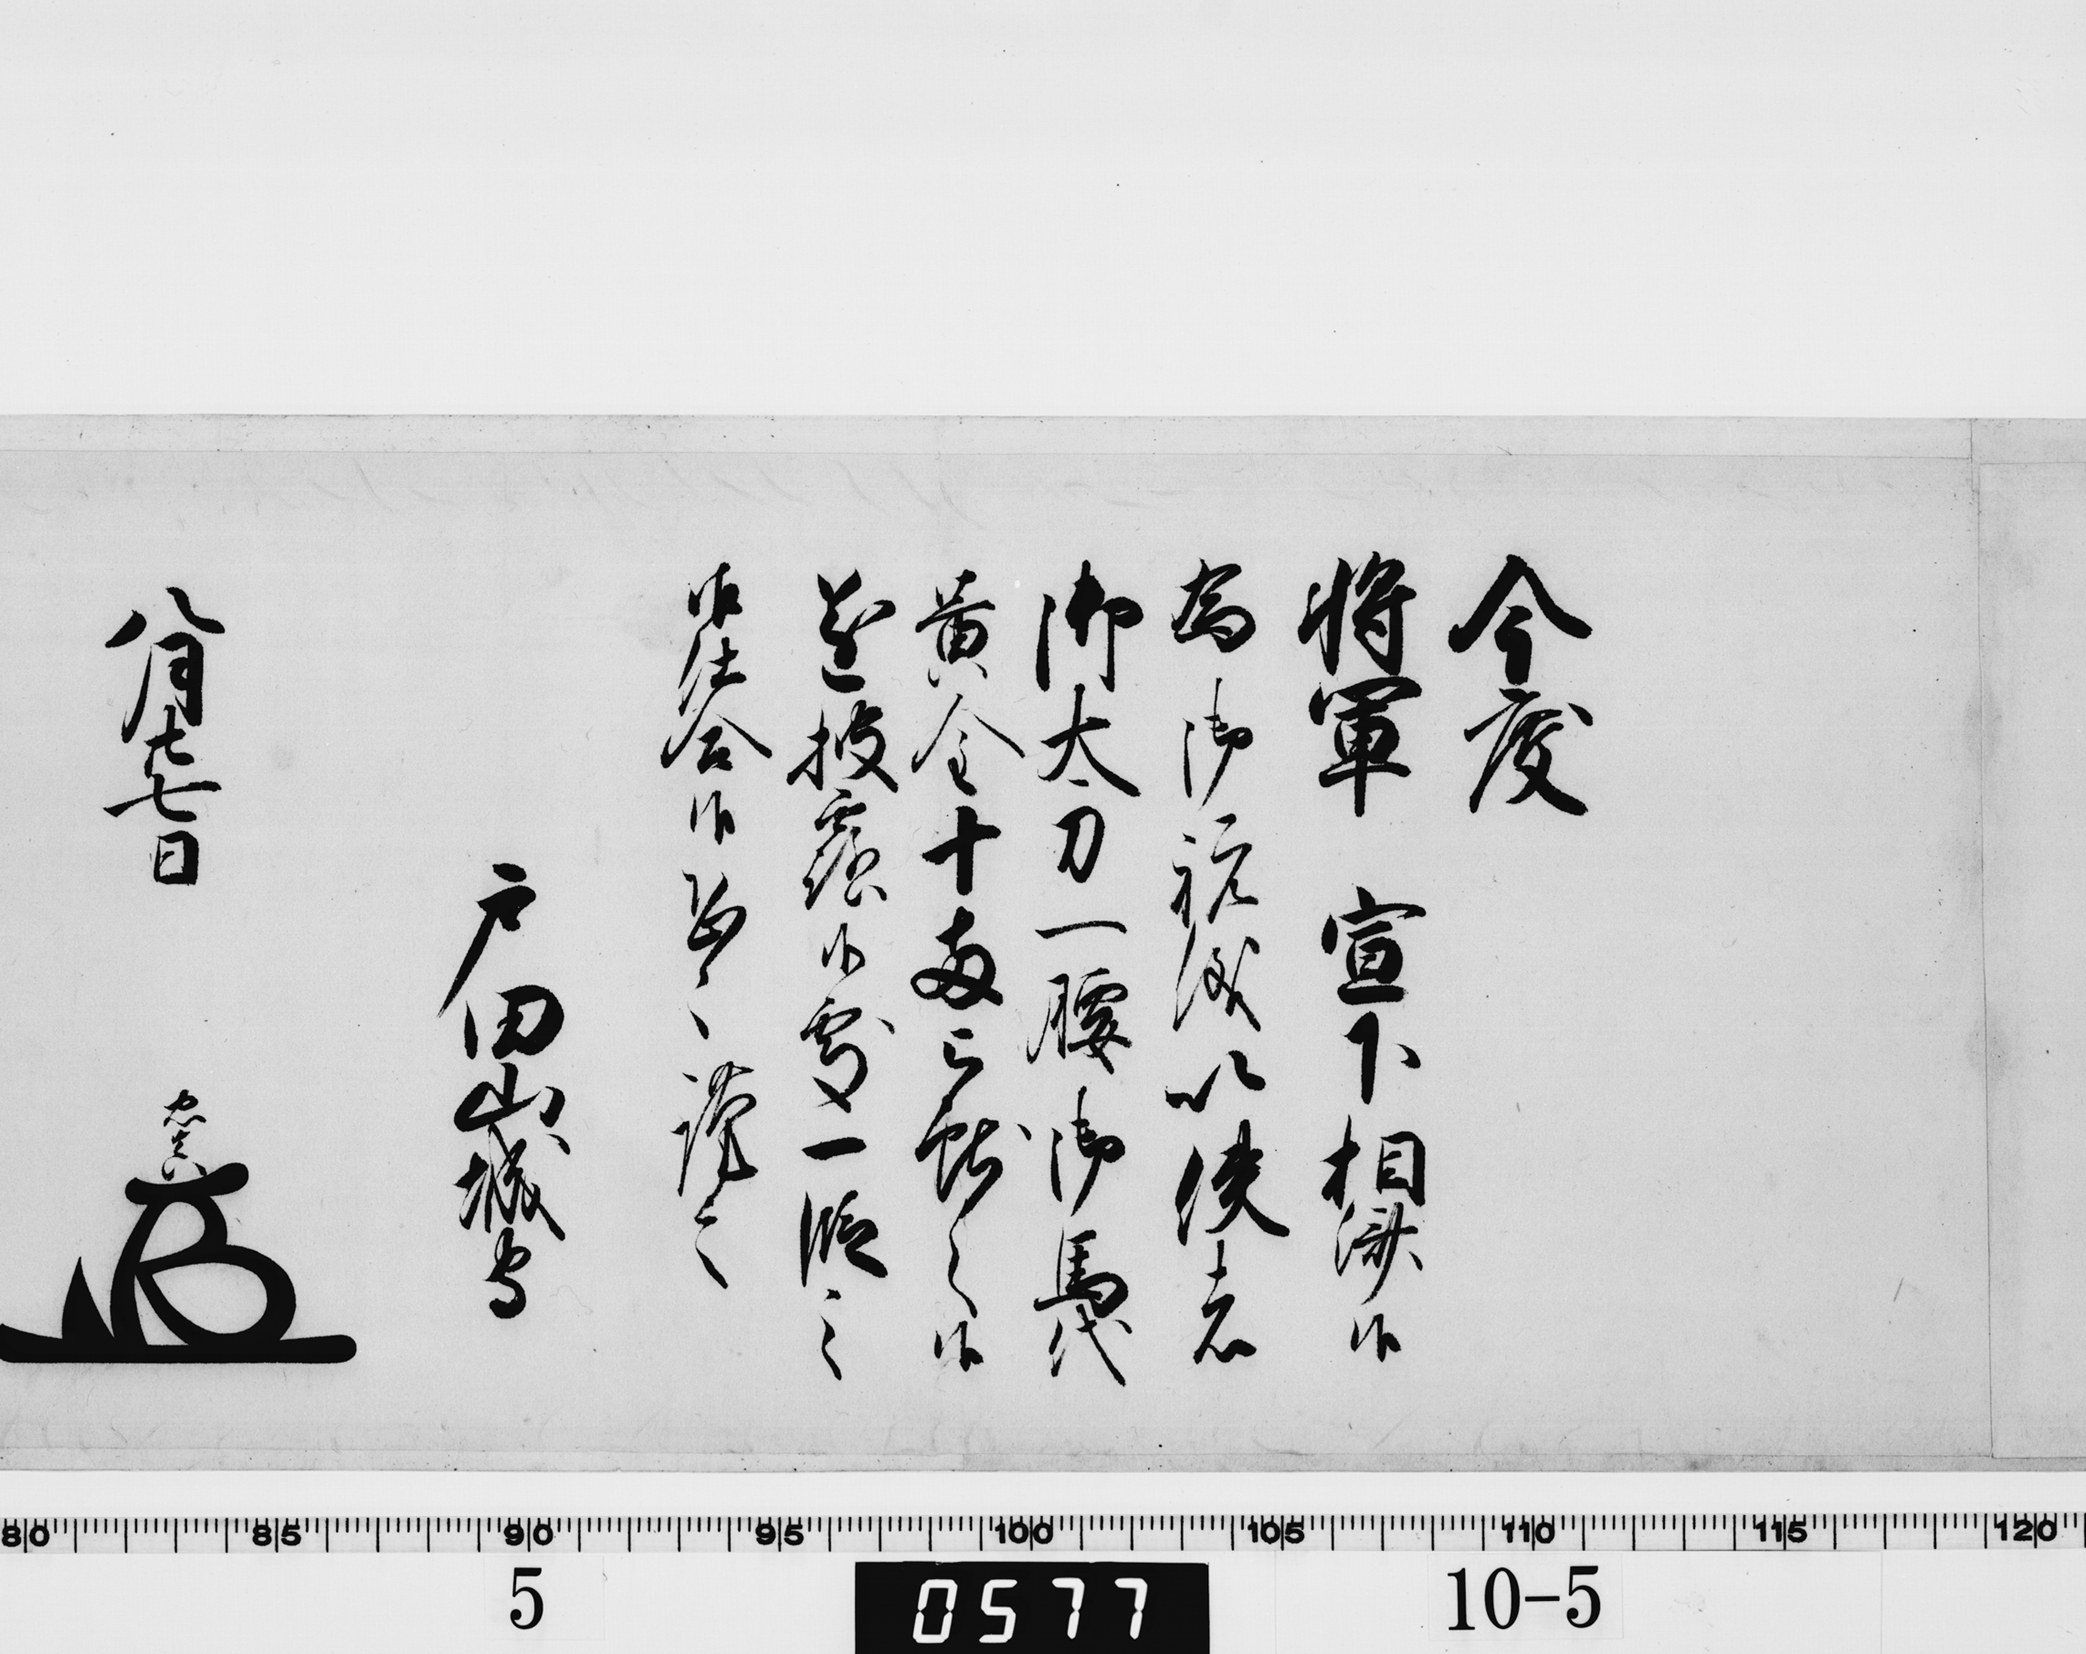 今度
将軍　宣下相済候
為御祝儀以使者
御太刀一腰御馬代
黄金十両被献之候
遂披露候処一段之
御仕合候恐々謹言
戸田山城守
八月廿七日
忠真
80 85 90 95 100 105 110 115 120
5 0577 10-5